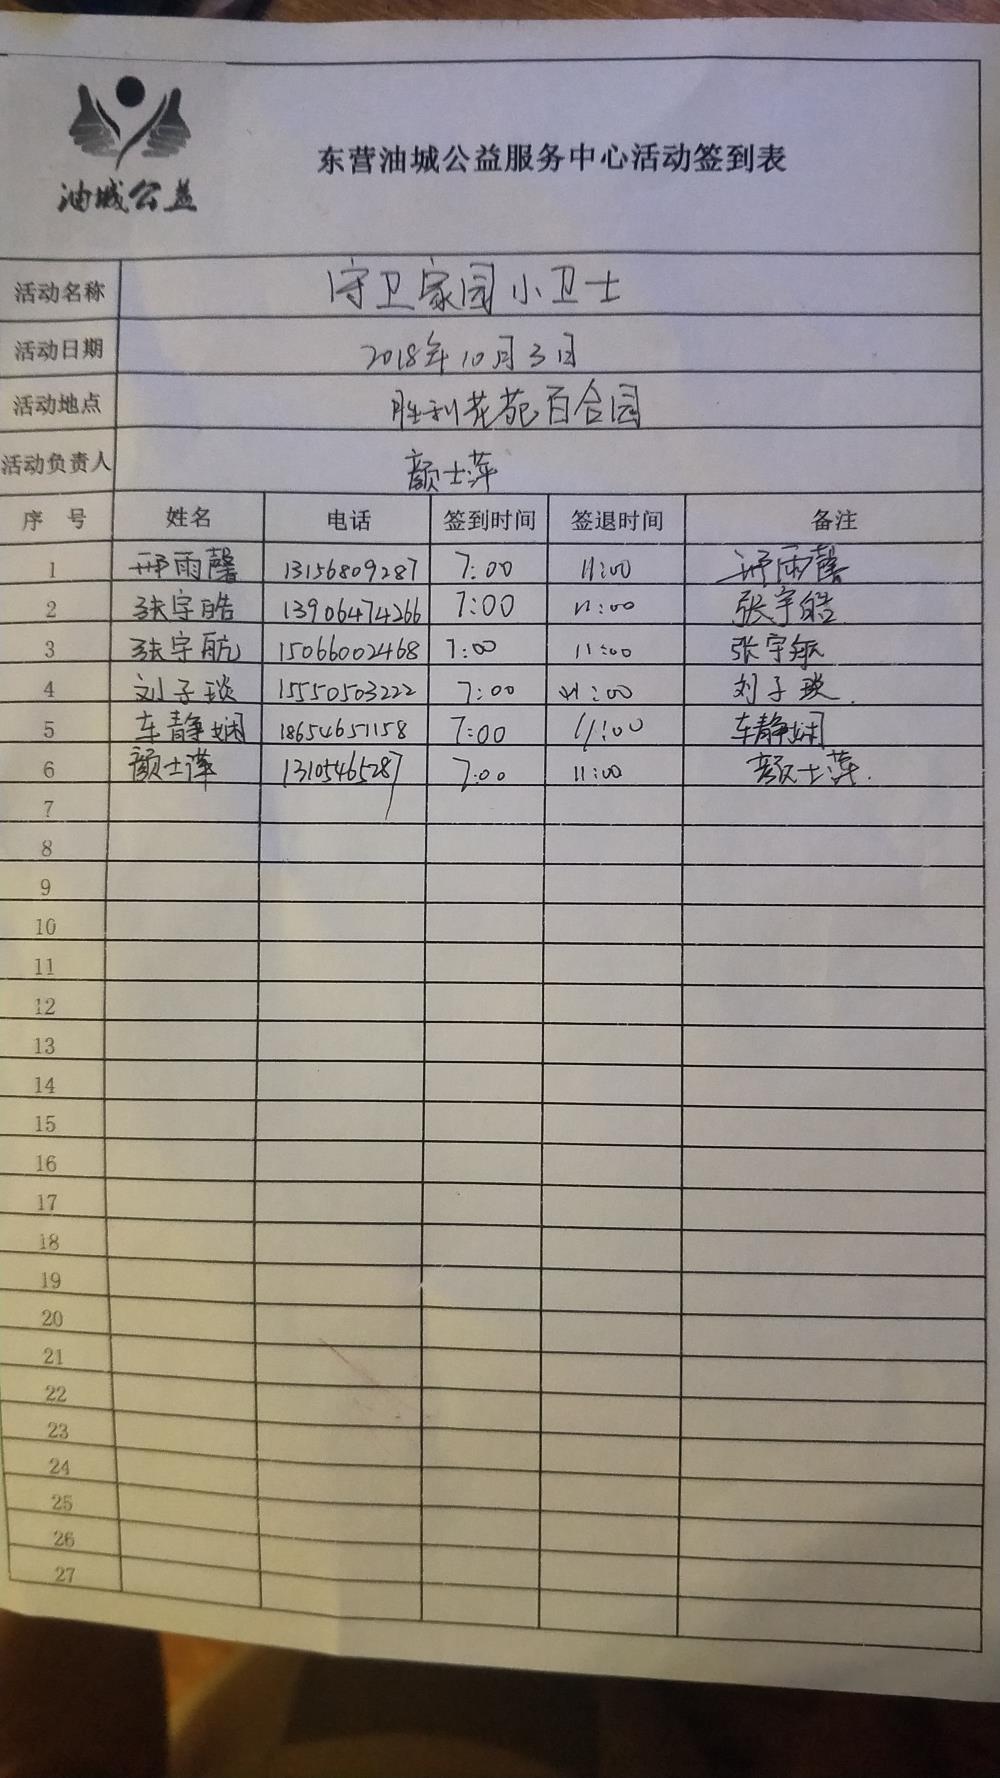 油城公益
东营油城公益服务中心活动签到表
活动名称 守卫家园小卫士
活动日期 2018年10月3日
活动地点 胜利花苑百合园
活动负责人 颜士萍
序 号 姓名 电话 签到时间 签退时间 备注
1 邢雨馨 13156809287 7:00 11:00 邢雨馨
2 张宇皓 13906474266 7:00 11:00 张宇皓
3 张宇航 15066002468 7:00 11:00 张宇航
4 刘子琰 15550503222 7:00 11:00 刘子琰.
5 车静娴 18654651158 7:00 11:00 车静娴
6 颜士萍 13105465287 7:00 11:00 颜士萍.
7
8
9
10
11
12
13
14
15
16
17
18
19
20
21
22
23
24
25
26
27